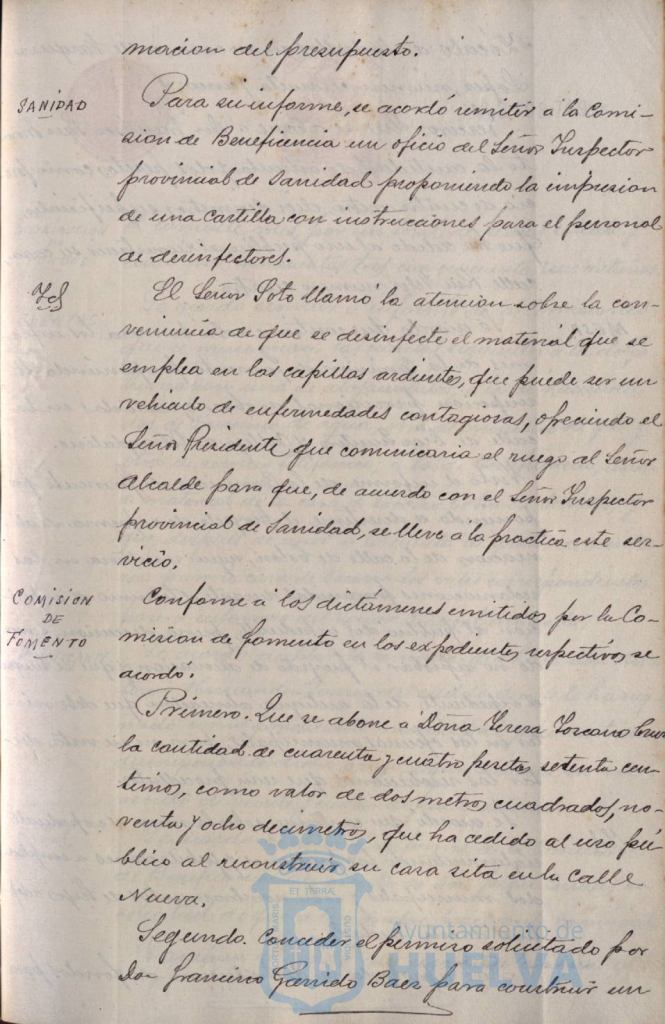 macion del presupuesto.
SANIDAD
Para su informe, se acordó remitir á la Comi-
sion de Beneficencia un oficio del Señor Inspector
provincial de Sanidad proponiendo la impresion
de una cartilla con instrucciones para el personal
de desinfectores.
El Señor Soto llamó la atencion sobre la con-
veniencia de que se desinfecte el material que se
emplea en las capillas ardientes, que puede ser un
vehiculo de enfermedades contagiosas, ofreciendo el
Señor Presidente que comunicaria el ruego al Señor
Alcalde para que, de acuerdo con el Señor Inspector
provincial de Sanidad, se lleve á la practica este ser-
vicio.
COMISION
DE
FOMENTO
Conforme á los dictámenes emitidos por la Co-
mision de fomento en los expedientes respectivos se
acordó.
Primero. Que se abone á Doña Teresa Toscano Cruz
la cantidad de cuarenta y cuatro pesetas setenta cen-
timos, como valor de dos metros cuadrados, no-
venta y ocho decimetros, que ha cedido al uso pú-
blico al reconstruir su casa sita en la calle
Nueva.
Segundo. Conceder el permiso solicitado por
Don Francisco Garrido Baez para construir un
ET TERRÆ
Ayuntamiento de
HUELVA